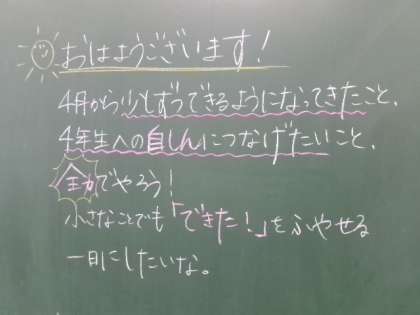 おはようございます!
4月から少しずつできるようになってきたこと、
4年生への自しんにつなげたいこと、
全力でやろう!
小さなことでも「できた!」をふやせる
一日にしたいな。